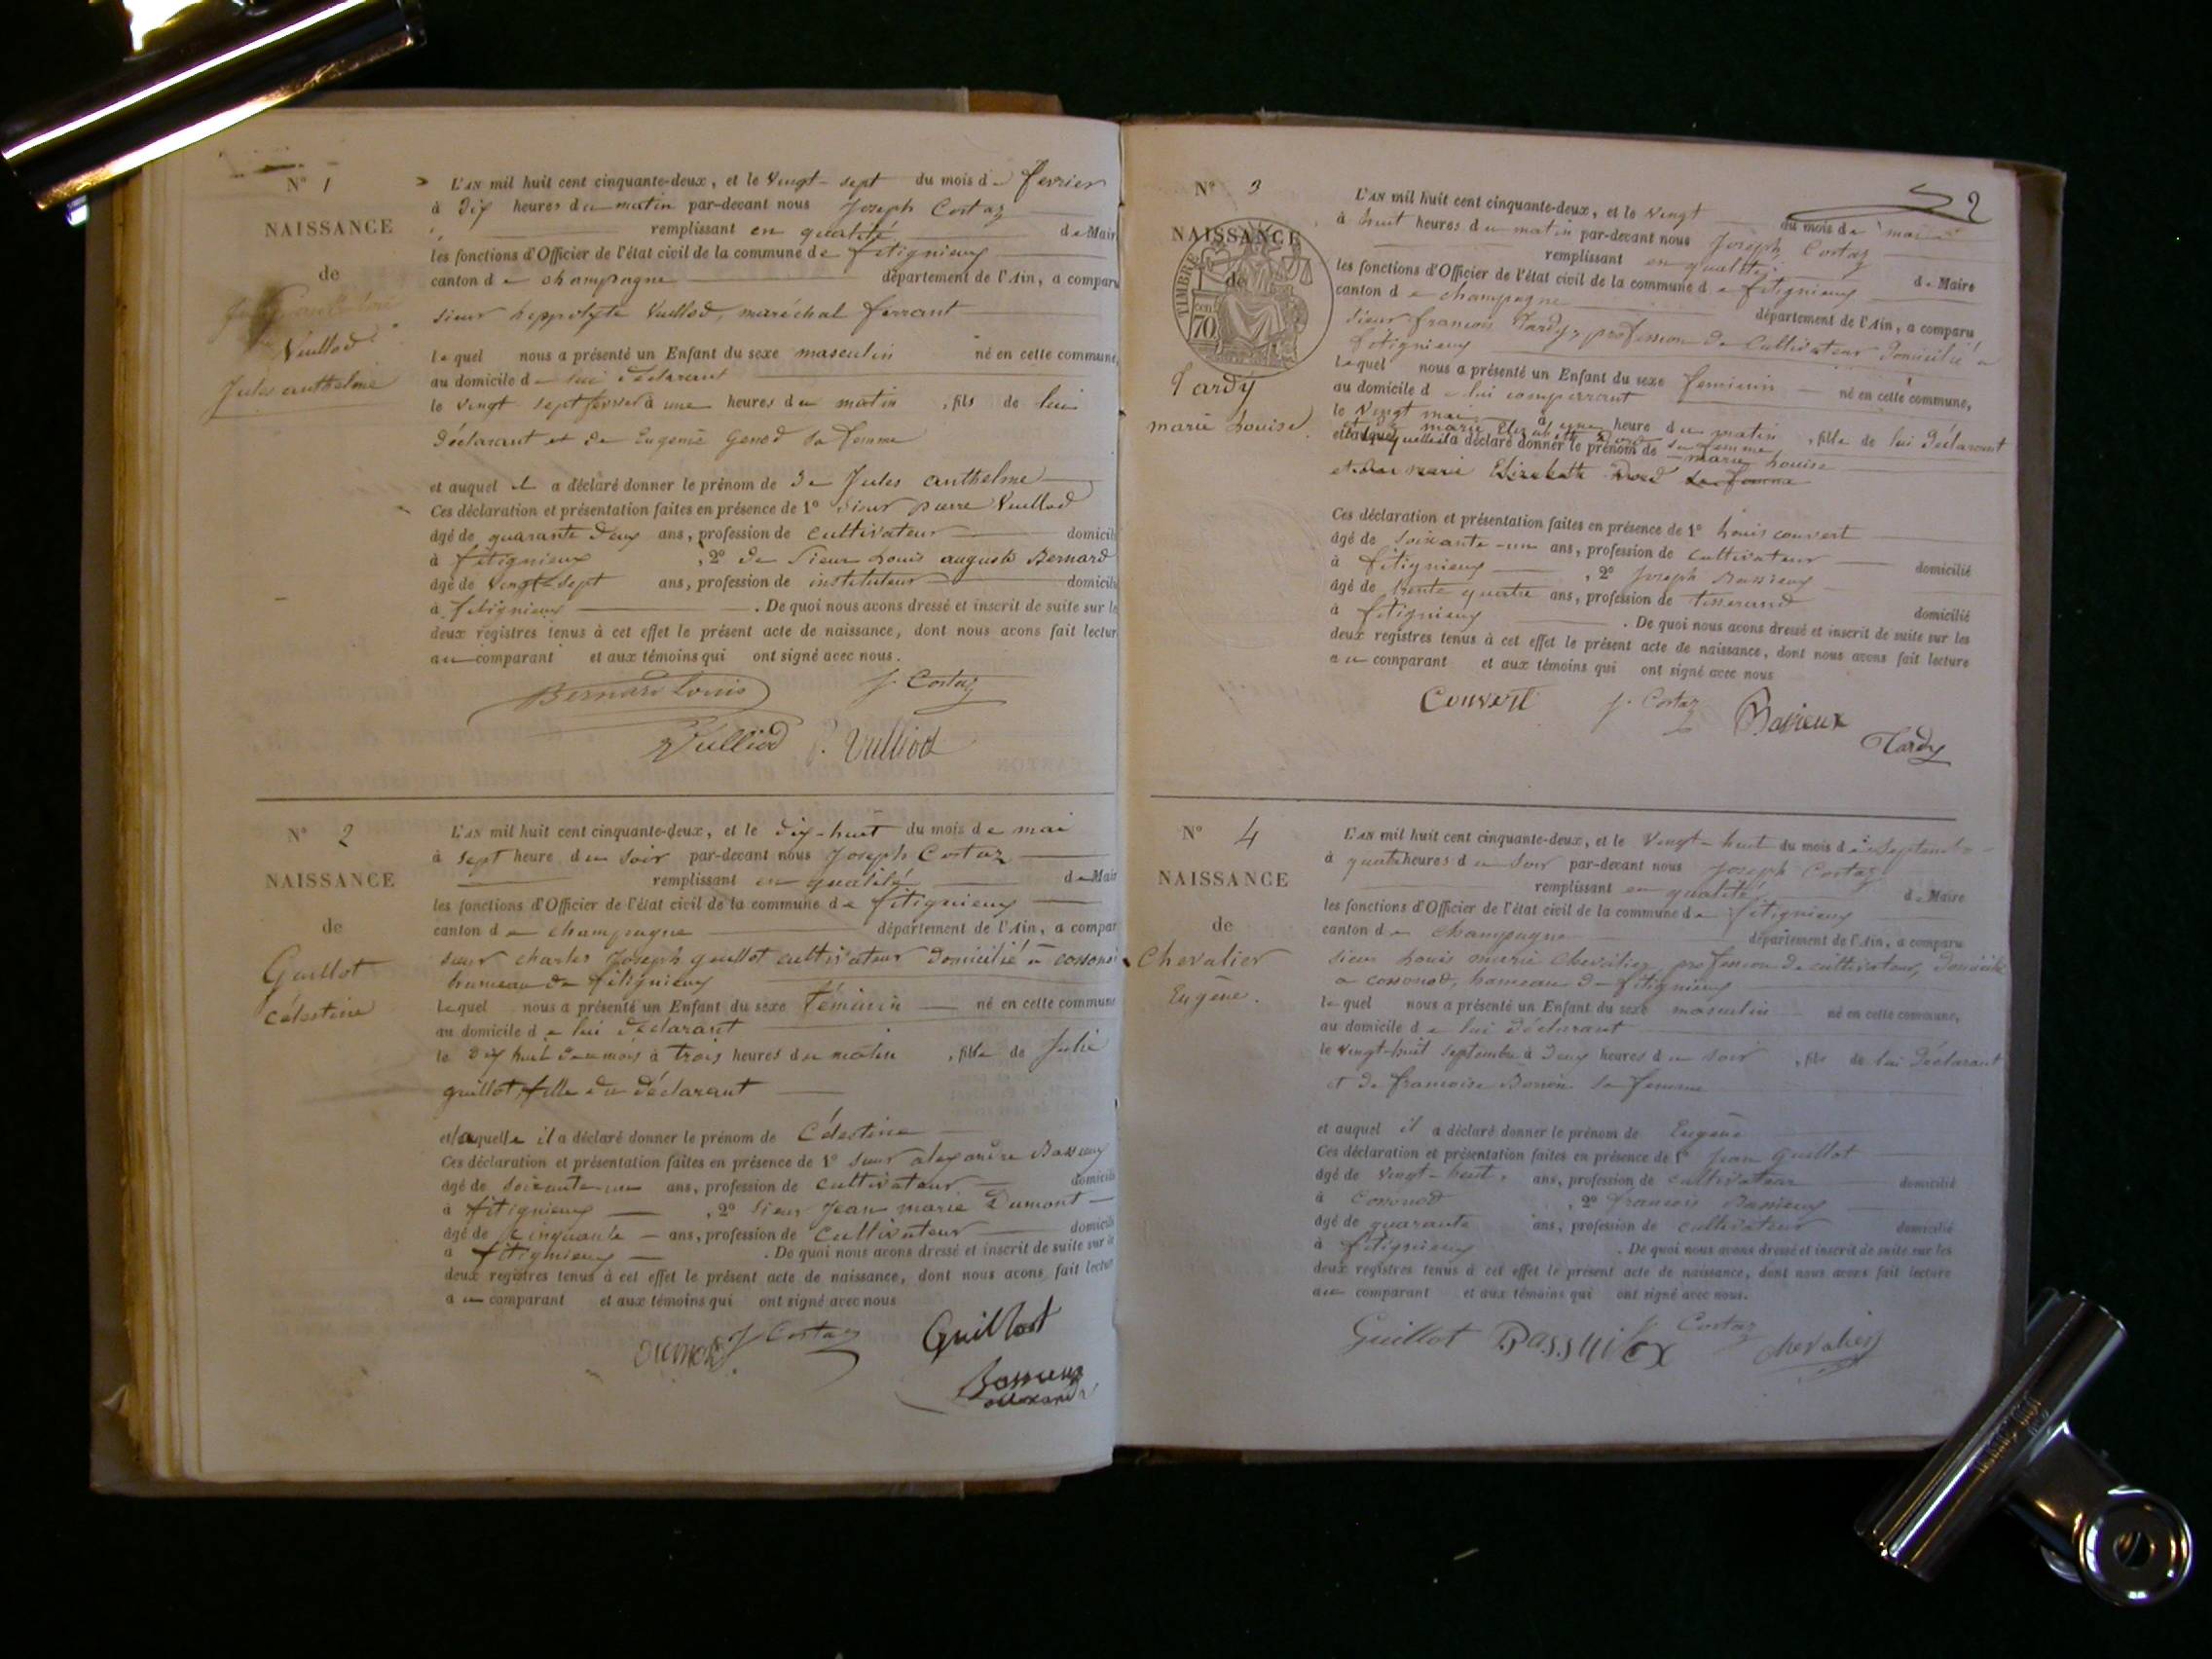 N° 1
NAISSANCE
de
Vuillod
Jules anthelme
L'AN mil huit cent cinquante-deux, et le Vingt-sept du mois de fevrier
à dix heures du matin par-devant nous Joseph Costaz
remplissant en qualité de Mair
les fonctions d'Officier de l'état civil de la commune de fitignieux
canton de champagne département de l'Ain, a comparu
sieur hyppolyte Vuillod, maréchal ferrant
lequel nous a présenté un Enfant du sexe masculin né en cette commune,
au domicile de lui déclarant
le vingt sept fevrier à une heures du matin, fils de lui
déclarant et de Eugenie Genod sa femme
et auquel il a déclaré donner le prénom de De Jules anthelme
Ces déclaration et présentation faites en présence de 1° Sieur pierre Vuillod
âgé de quarante deux ans, profession de cultivateur domicili
à fitignieux, 2° de Sieur Louis auguste Bernard
âgé de vingt-sept ans, profession de instituteur domicili
à fitignieux. De quoi nous avons dressé et inscrit de suite sur le
deux registres tenus à cet effet le présent acte de naissance, dont nous avons fait lectur
au comparant et aux témoins qui ont signé avec nous.
Bernard Louis J. Costaz
Vulliod P. Vulliod
N° 2
NAISSANCE
de
Guillot
célestine
L'AN mil huit cent cinquante-deux, et le dix-huit du mois de mai
à sept heure du soir par-devant nous Joseph Costaz
remplissant en qualité de Mair
les fonctions d'Officier de l'état civil de la commune de fitignieux
canton de champagne département de l'Ain, a compar
sieur charles Joseph guillot cultivateur domicilié à cossonod
hameau de fitignieux
lequel nous a présenté un Enfant du sexe féminin né en cette commune
au domicile de lui déclarant
le dix huit du mois à trois heures du matin, fille de Julie
guillot fille du déclarant
et laquelle il a déclaré donner le prénom de Célestine
Ces déclaration et présentation faites en présence de 1° sieur alexandre Bassieux
âgé de soixante-un ans, profession de cultivateur domicili
à fitignieux, 2° Sieur Jean marie Dumont
âgé de cinquante ans, profession de cultivateur domicili
à fitignieux. De quoi nous avons dressé et inscrit de suite sur le
deux registres tenus à cet effet le présent acte de naissance, dont nous avons fait lectur
au comparant et aux témoins qui ont signé avec nous
Dumont J Costaz Guillot
Bassieux
alexandr
2
N° 3
NAISSANCE
de
TIMBRE
70
Tardy
marie Louise
L'AN mil huit cent cinquante-deux, et le vingt du mois de mai
à huit heures du matin par-devant nous Joseph Costaz
remplissant en qualité de Maire
les fonctions d'Officier de l'état civil de la commune de fitignieux
canton de champagne département de l'Ain, a comparu
sieur francois Tardy, profession de cultivateur domicilié à
fitignieux
lequel nous a présenté un Enfant du sexe feminin né en cette commune,
au domicile de lui comparant
le Vingt mai à une heure du matin, fille de lui déclarant
et de marie Elizabeth sa femme
et laquelle il a déclaré donner le prénom de marie Louise
et de marie Elizabeth sa femme
Ces déclaration et présentation faites en présence de 1° Louis convert
âgé de soixante-un ans, profession de cultivateur domicilié
à fitignieux, 2° Joseph Bassieux
âgé de trente quatre ans, profession de tisserand domicilié
à fitignieux. De quoi nous avons dressé et inscrit de suite sur les
deux registres tenus à cet effet le présent acte de naissance, dont nous avons fait lecture
au comparant et aux témoins qui ont signé avec nous
Convert J. Costaz Bassieux
Tardy
N° 4
NAISSANCE
de
Chevalier
Eugène.
L'AN mil huit cent cinquante-deux, et le Vingt-huit du mois de Septembre
à quatre heures du soir par-devant nous Joseph Costaz
remplissant en qualité de Maire
les fonctions d'Officier de l'état civil de la commune de fitignieux
canton de Champagne département de l'Ain, a comparu
sieur Louis marie Chevalier, profession de cultivateur, domicilié
à cossonod, hameau de fitignieux
lequel nous a présenté un Enfant du sexe masculin né en cette commune,
au domicile de lui déclarant
le vingt-huit septembre à deux heures du soir, fils de lui déclarant
et de francoise sa femme
et auquel il a déclaré donner le prénom de Eugène
Ces déclaration et présentation faites en présence de 1° Jean Guillot
âgé de vingt-huit, ans, profession de cultivateur domicilié
à Cossonod, 2° francois Bassieux
âgé de quarante ans, profession de cultivateur domicilié
à fitignieux. De quoi nous avons dressé et inscrit de suite sur les
deux registres tenus à cet effet le présent acte de naissance, dont nous avons fait lecture
au comparant et aux témoins qui ont signé avec nous.
Guillot Bassieux J. Costaz chevalier